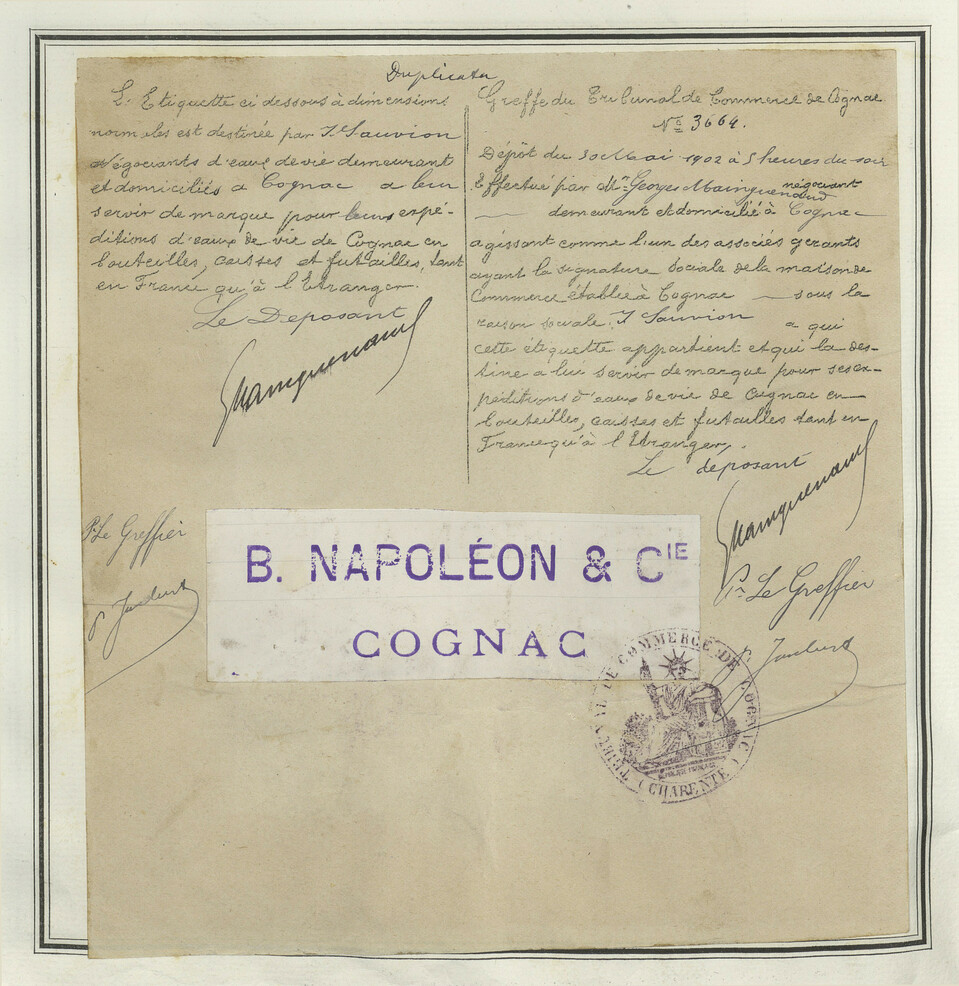 Duplicata
L'Etiquette ci dessous à dimensions
normales est destinée par J. Sauvion
Négociants d'eaux de vie demeurant
et domiciliés a Cognac a leur
servir de marque pour leurs expé-
ditions d'eaux de vie de Cognac en
bouteilles, caisses et futailles, tant
en France qu'à l'Etranger.
Le Deposant
Mainguenaud
Pr Le Greffier
Greffe du Tribunal de Commerce de Cognac
No 3664.
Dépôt du 30 Mai 1902 à 5 heures du soir
Effectué par Mr Georges Mainguenaud négociant
demeurant et domicilié à Cognac
agissant comme l'un des associés gerants
ayant la signature sociale de la maison de
Commerce établie à Cognac — sous la
raison sociale J. Sauvion a qui
cette étiquette appartient et qui la des-
tine a lui servir de marque pour ses ex-
péditions d'eaux de vie de Cognac en
bouteilles, caisses et futailles tant en
France qu'à l'Etranger.
Le deposant
Mainguenaud
Pr Le Greffier
B. NAPOLÉON & CIE
COGNAC
TRIBUNAL DE COMMERCE DE COGNAC
(CHARENTE)
REPUBLIQUE FRANÇAISE